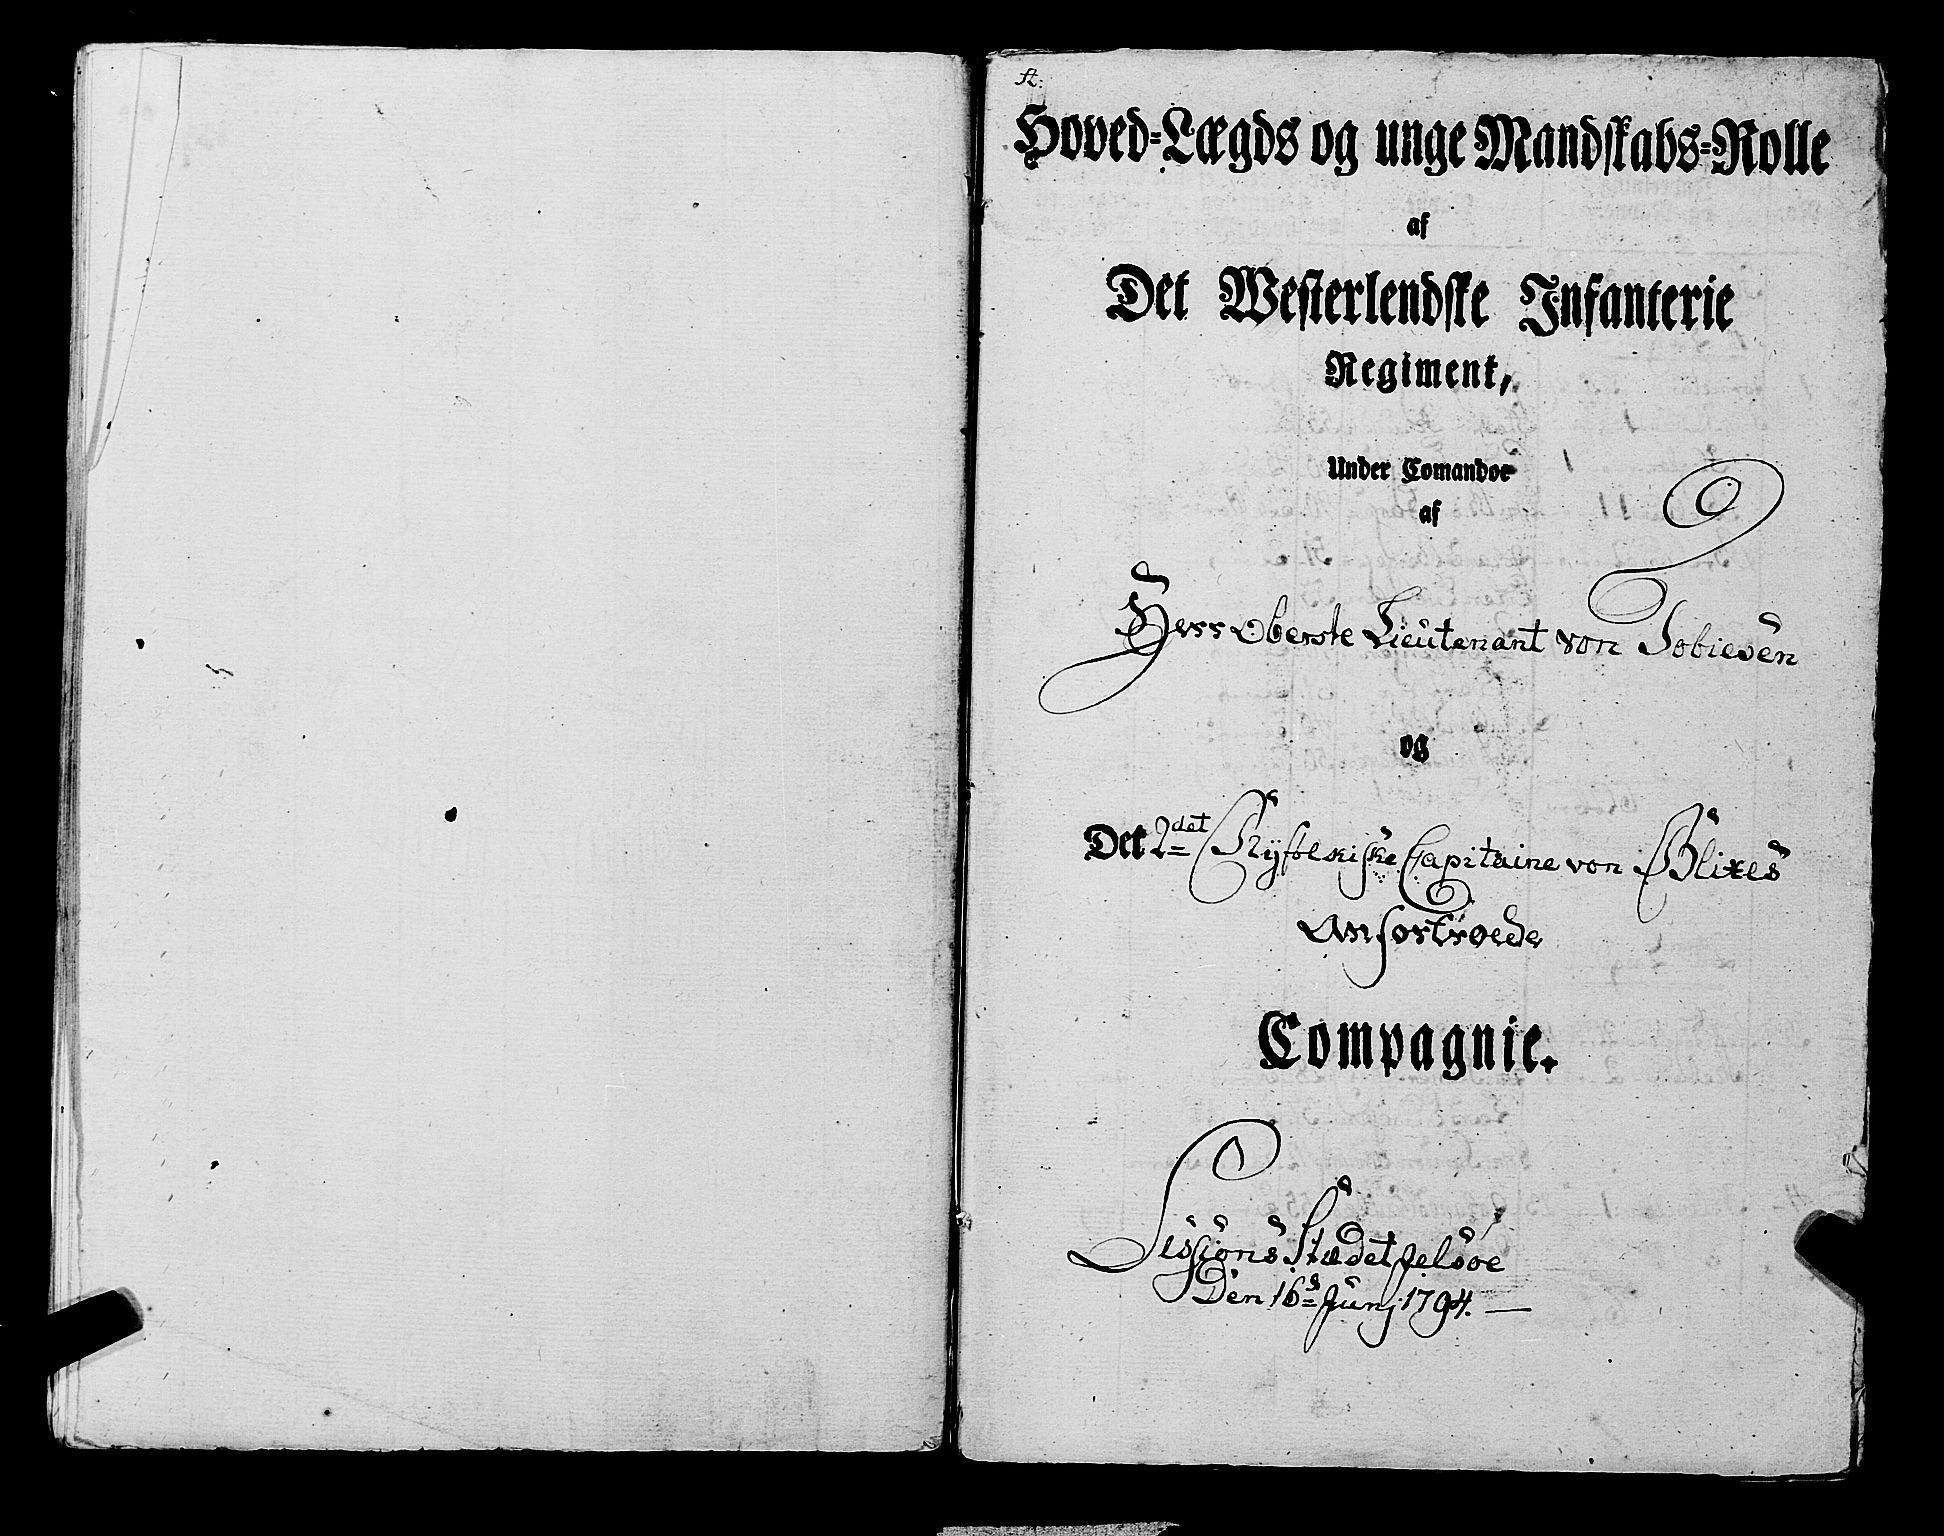 A:
Hoved-Lægds og unge Mandskabs-Rolle
af
Det Westerlendske Infanterie
Regiment,
Under Comandoe
af
Herr Oberste Lieutenant von Tobiesen
og
Det 2det Ryfølkiske Capitaine von Blixes
Anfortroede
Compagnie.
Sessions Stædet Jelsøe
Den 16s Junj 1794.